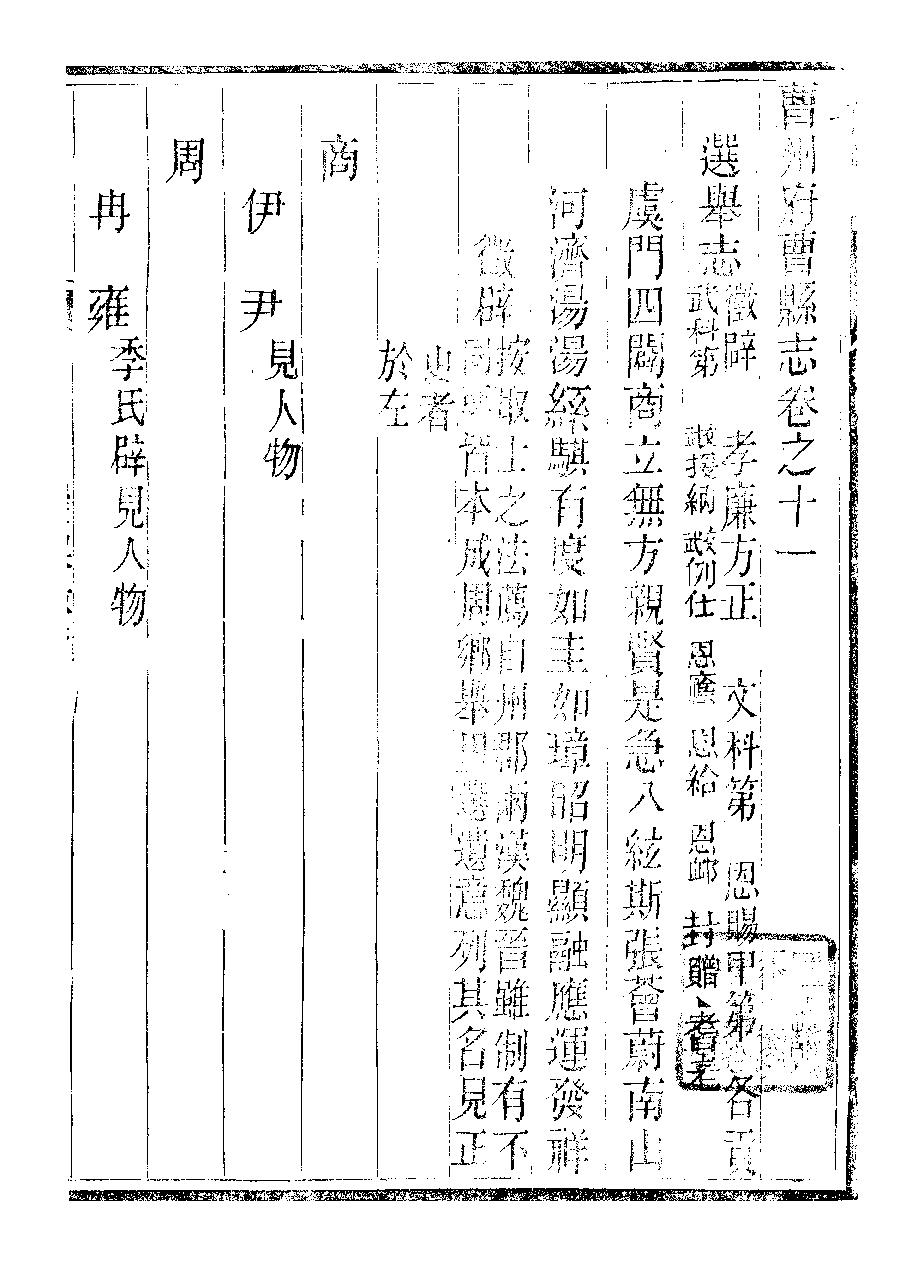 曹州府曹縣志卷之十一
選舉志徵辟 孝廉方正 文科第 恩賜甲第 各貢
武科第 武援納 文武例仕 恩廕 恩給 恩䘏 封贈 耆老
虞門四闢商立無方親賢是急八紘斯張薈蔚南山
河濟湯湯綵騏有度如圭如璋昭明顯融應運發祥
徵辟按取士之法薦自州郡兩漢魏晉雖制有不
同要皆本成周鄉舉里選遺意列其名見正
史者
於左
商
伊尹見人物
周
冉雍季氏辟見人物